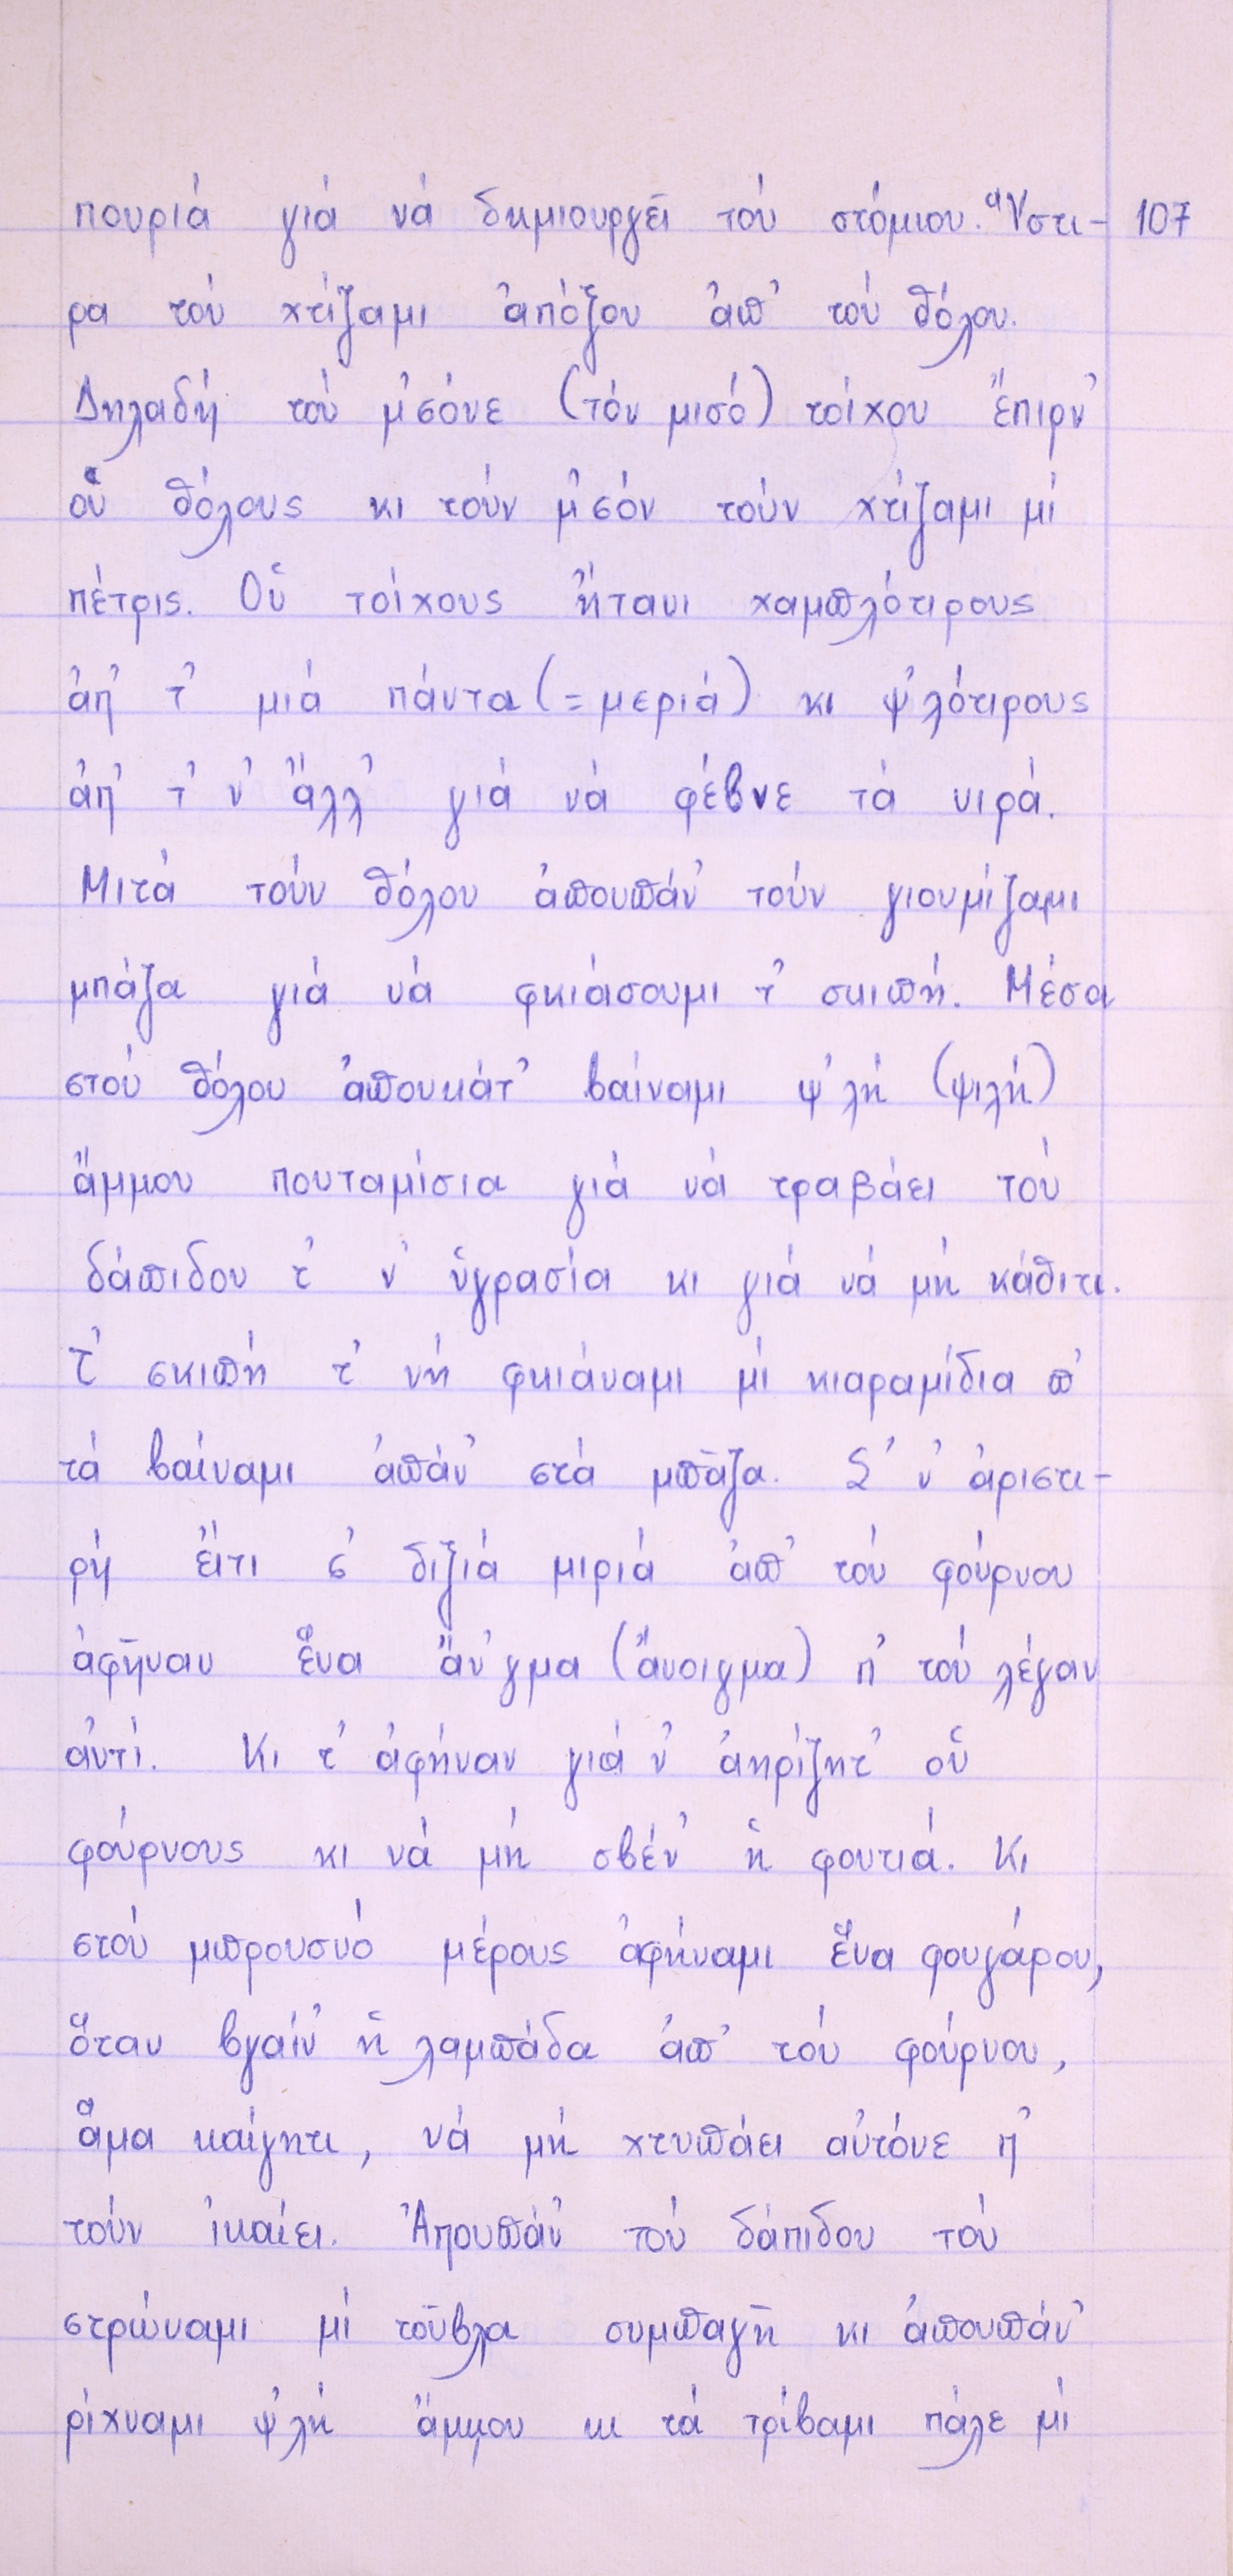 πουριά γιά νά δημιουργεῖ τού στόμιου. Ὕστι- 107
ρα τού χτίζαμι ἀπόξου ἀπ' τού θόλου.
Δηλαδή τού μ'σόνε (τόν μισό) τοίχου ἔπιρν'
οὑ θόλους κι τούν μ'σόν τούν χτίζαμι μί
πέτρις. Οὑ τοίχους ἤτανι χαμπλότιρους
ἀπ' τ' μιά πάντα (=μεριά) κι ψ'λότιρους
ἀπ' τ' ν' ἄλλ' γιά νά φέβνε τά νιρά.
Μιτά τούν θόλου ἀπουπάν' τούν γιουμίζαμι
μπάζα γιά νά φκιάσουμι τ' σκιπή. Μέσα
στού θόλου ἀπουκάτ' βαίναμι ψ'λή (ψιλή)
ἄμμου πουταμίσια γιά νά τραβάει τού
δάπιδου τ' ν' ὑγρασία κι γιά νά μή κάθιτι.
Τ' σκιπή τ' νή φκιάναμι μί κιαραμίδια π'
τά βαίναμι ἀπάν' στά μπᾶζα. Σ' ν' ἀριστι-
ρή εἴτι σ' διξιά μιριά ἀπ' τού φούρνου
ἀφῆναν ἕνα ἄν'γμα (ἄνοιγμα) π' τού λέγαν
ἀντί. Κι τ' ἀφήναν γιά ν' ἀηρίζητ' οὑ
φούρνους κι νά μή σβέν' ἡ φουτιά. Κι
στού μπρουσνό μέρους ἀφήναμι ἕνα φουγάρου,
ὅταν βγαίν' ἡ λαμπάδα ἀπ' τού φούρνου,
ἅμα καίγητι, νά μή χτυπάει αὐτόνε π'
τούν ἰκαίει. Ἀπουπάν' τού δάπιδου τού
στρώναμι μί τοῦβλα συμπαγῆ κι ἀπουπάν'
ρίχναμι ψ'λή ἄμμου κι τά τρίβαμι πάλε μί